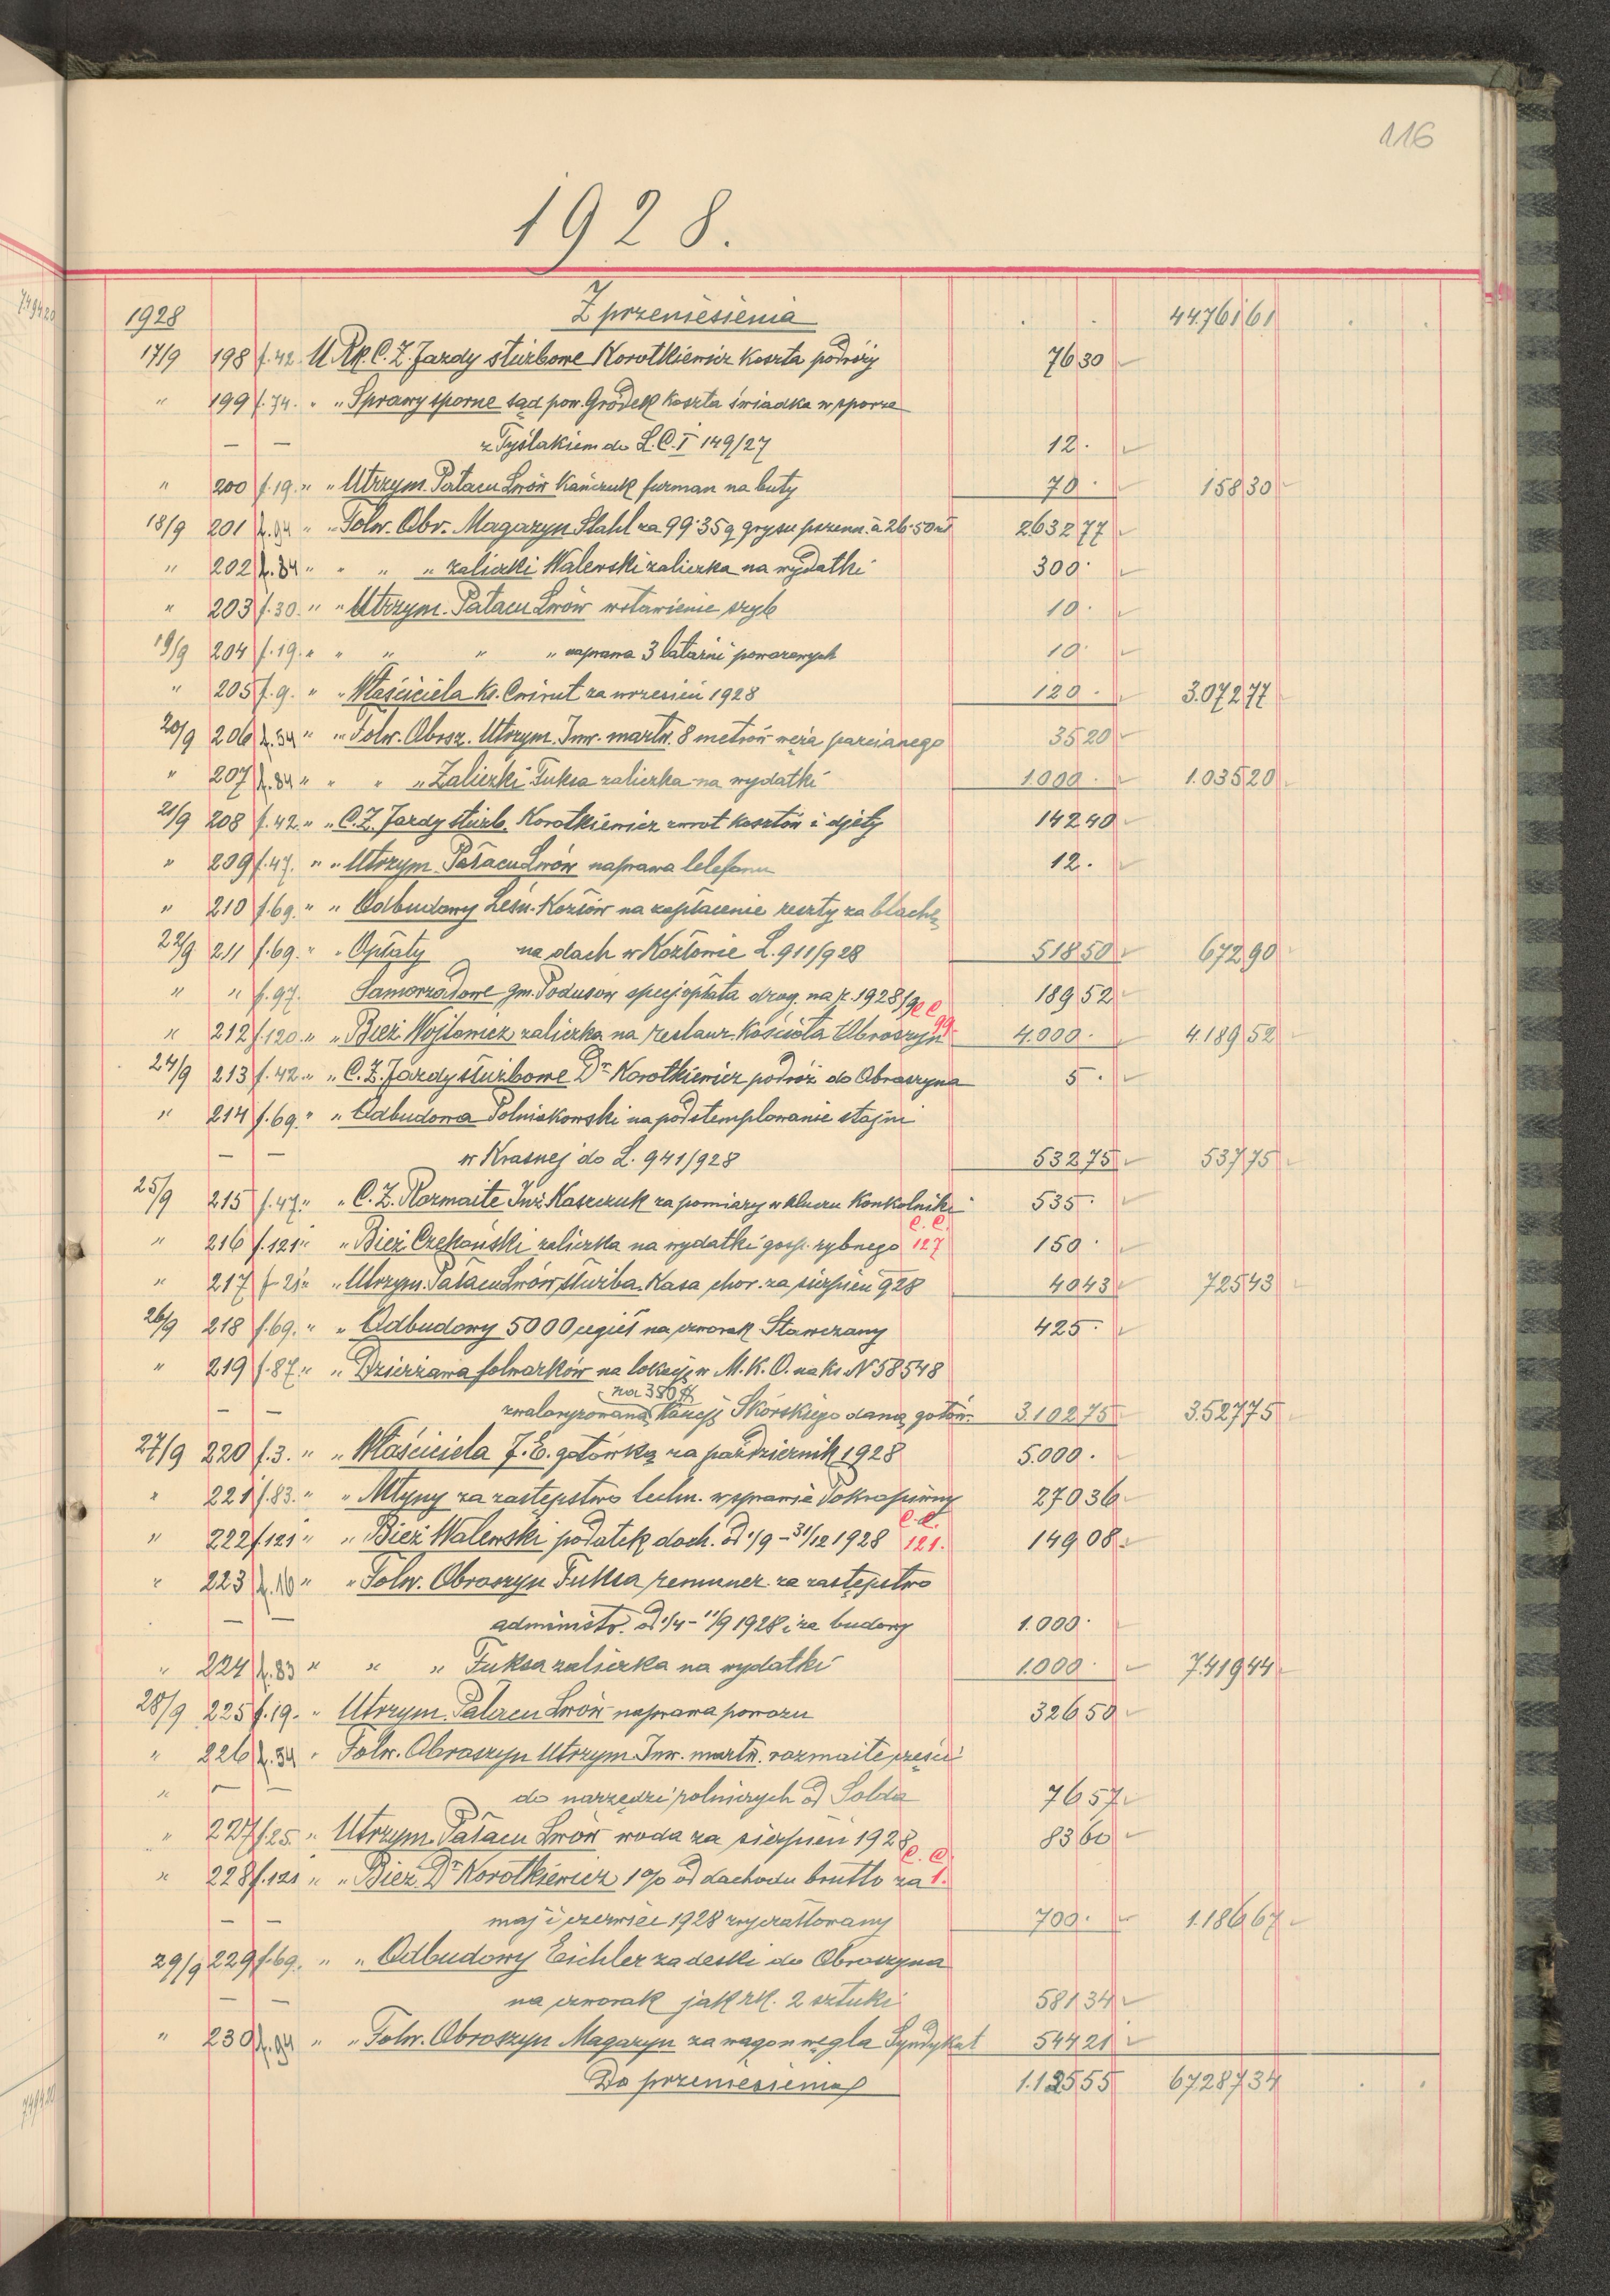 116
1928.
1928 Z przeniesienia 44.761 61
17/9 198 f.42. U Rk. C. Z. Jazdy służbowe Korotkiewicz koszta podróży 76 30
" 199 f.74. " " Sprawy sporne sąd pow. Gródek koszta świadka w sporze
— — z Tyślakiem do L.C.I 149/27 12.
" 200 f.19. " " Utrzym. Pałacu Lwów Kańczuk furman na buty 70. 158 30
18/9 201 f.94 " " Folw. Obr. Magazyn Stahl za 99·35 q grysu pszenn. à 26·50 zł 2.632 77
" 202 f.84 " " " " zaliczki Walewski zaliczka na wydatki 300.
" 203 f.30. " " Utrzym. Pałacu Lwów wstawienie szyb 10.
19/9 204 f.19. " " " " " naprawa 3 latarni powozowych 10.
" 205 f.9. " " Właściciela Ks. Ćwirut za wrzesień 1928 120. 3.072 77
20/9 206 f.54 " " Folw. Obrosz. Utrzym. Inw. martw. 8 metrów węża parcianego 35 20
" 207 f.84 " " " " Zaliczki Fuksa zaliczka na wydatki 1.000. 1.035 20
21/9 208 f.42. " " C.Z. Jazdy służb. Korotkiewicz zwrot kosztów i djety 142 40
" 209 f.47. " " Utrzym. Pałacu Lwów naprawa telefonu 12.
" 210 f.69. " " Odbudowy Leśn. Kozłów na zapłacenie reszty za blachę
22/9 211 f.69. " " Opłaty na dach w Kozłowie L. 911/928 518 50 672 90
" " f.97. Samorządowe gm. Podusów specj. opłata drog. na r. 1928/9 189 52
c c 99.
" 212 f.120. " " Bież. Wojtowicz zaliczka na restaur. Kościoła Obroszyn 4.000. 4.189 52
24/9 213 f.42. " " C.Z. Jazdy służbowe Dr Korotkiewicz podróż do Obroszyna 5.
" 214 f.69. " " Odbudowa Polniakowski na podstemplowanie stajni
— — w Krasnej do L. 941/928 532 75 537 75
25/9 215 f.47. " " C. Z. Rozmaite Inż. Kaszczuk za pomiary w kluczu Konkolniki 535.
c. c.
" 216 f.121 " " Bież. Czekoński zaliczka na wydatki gosp. rybnego 127 150.
" 217 f.21 " " Utrzym. Pałacu Lwów służba. Kasa chor. za sierpień 928 40 43 725 43
26/9 218 f.69. " " Odbudowy 5000 cegieł na czworak Stawczany 425.
" 219 f.87. " " Dzierżawa folwarków na lokację w M.K.O. na ks. N 58548
na 350 $
— — zwaloryzowaną kaucję Skórskiego daną gotów. 3.102 75 3.527 75
27/9 220 f.3. " " Właściciela J. E. gotówką za październik 1928 5.000.
" 221 f.83. " " Młyny za zastępstwo techn. w sprawie Pokropiwny 270 36
c. c.
" 222 f.121 " " Bież. Walewski podatek doch. od 1/9 – 31/12 1928 121. 149 08
" 223 f.16 " " Folw. Obroszyn Fuksa remuner. za zastępstwo
— — administr. od 1/4 – 11/9 1928 i za budowy 1.000.
" 224 f.83 " " " Fuksa zaliczka na wydatki 1.000. 7.419 44
28/9 225 f.19. " Utrzym. Pałacu Lwów naprawa powozu 326 50
" 226 f.54 " Folw. Obroszyn Utrzym. Inw. martw. rozmaite części
" — — do narzędzi rolniczych od Solda 76 57
" 227 f.25. " Utrzym. Pałacu Lwów woda za sierpień 1928 83 60
c. c.
" 228 f.121 " " Bież. Dr Korotkiewicz 1% od dochodu brutto za 1.
— — maj i czerwiec 1928 zryczałtowany 700. 1.186 67
29/9 229 f.69. " " Odbudowy Eichler za deski do Obroszyna
— — na czworak jak rk. 2 sztuki 581 34
" 230 f.94 " " Folw. Obroszyn Magazyn za wagon węgla Syndykat 544 21
Do przeniesienia 1.125 55 67.287 34